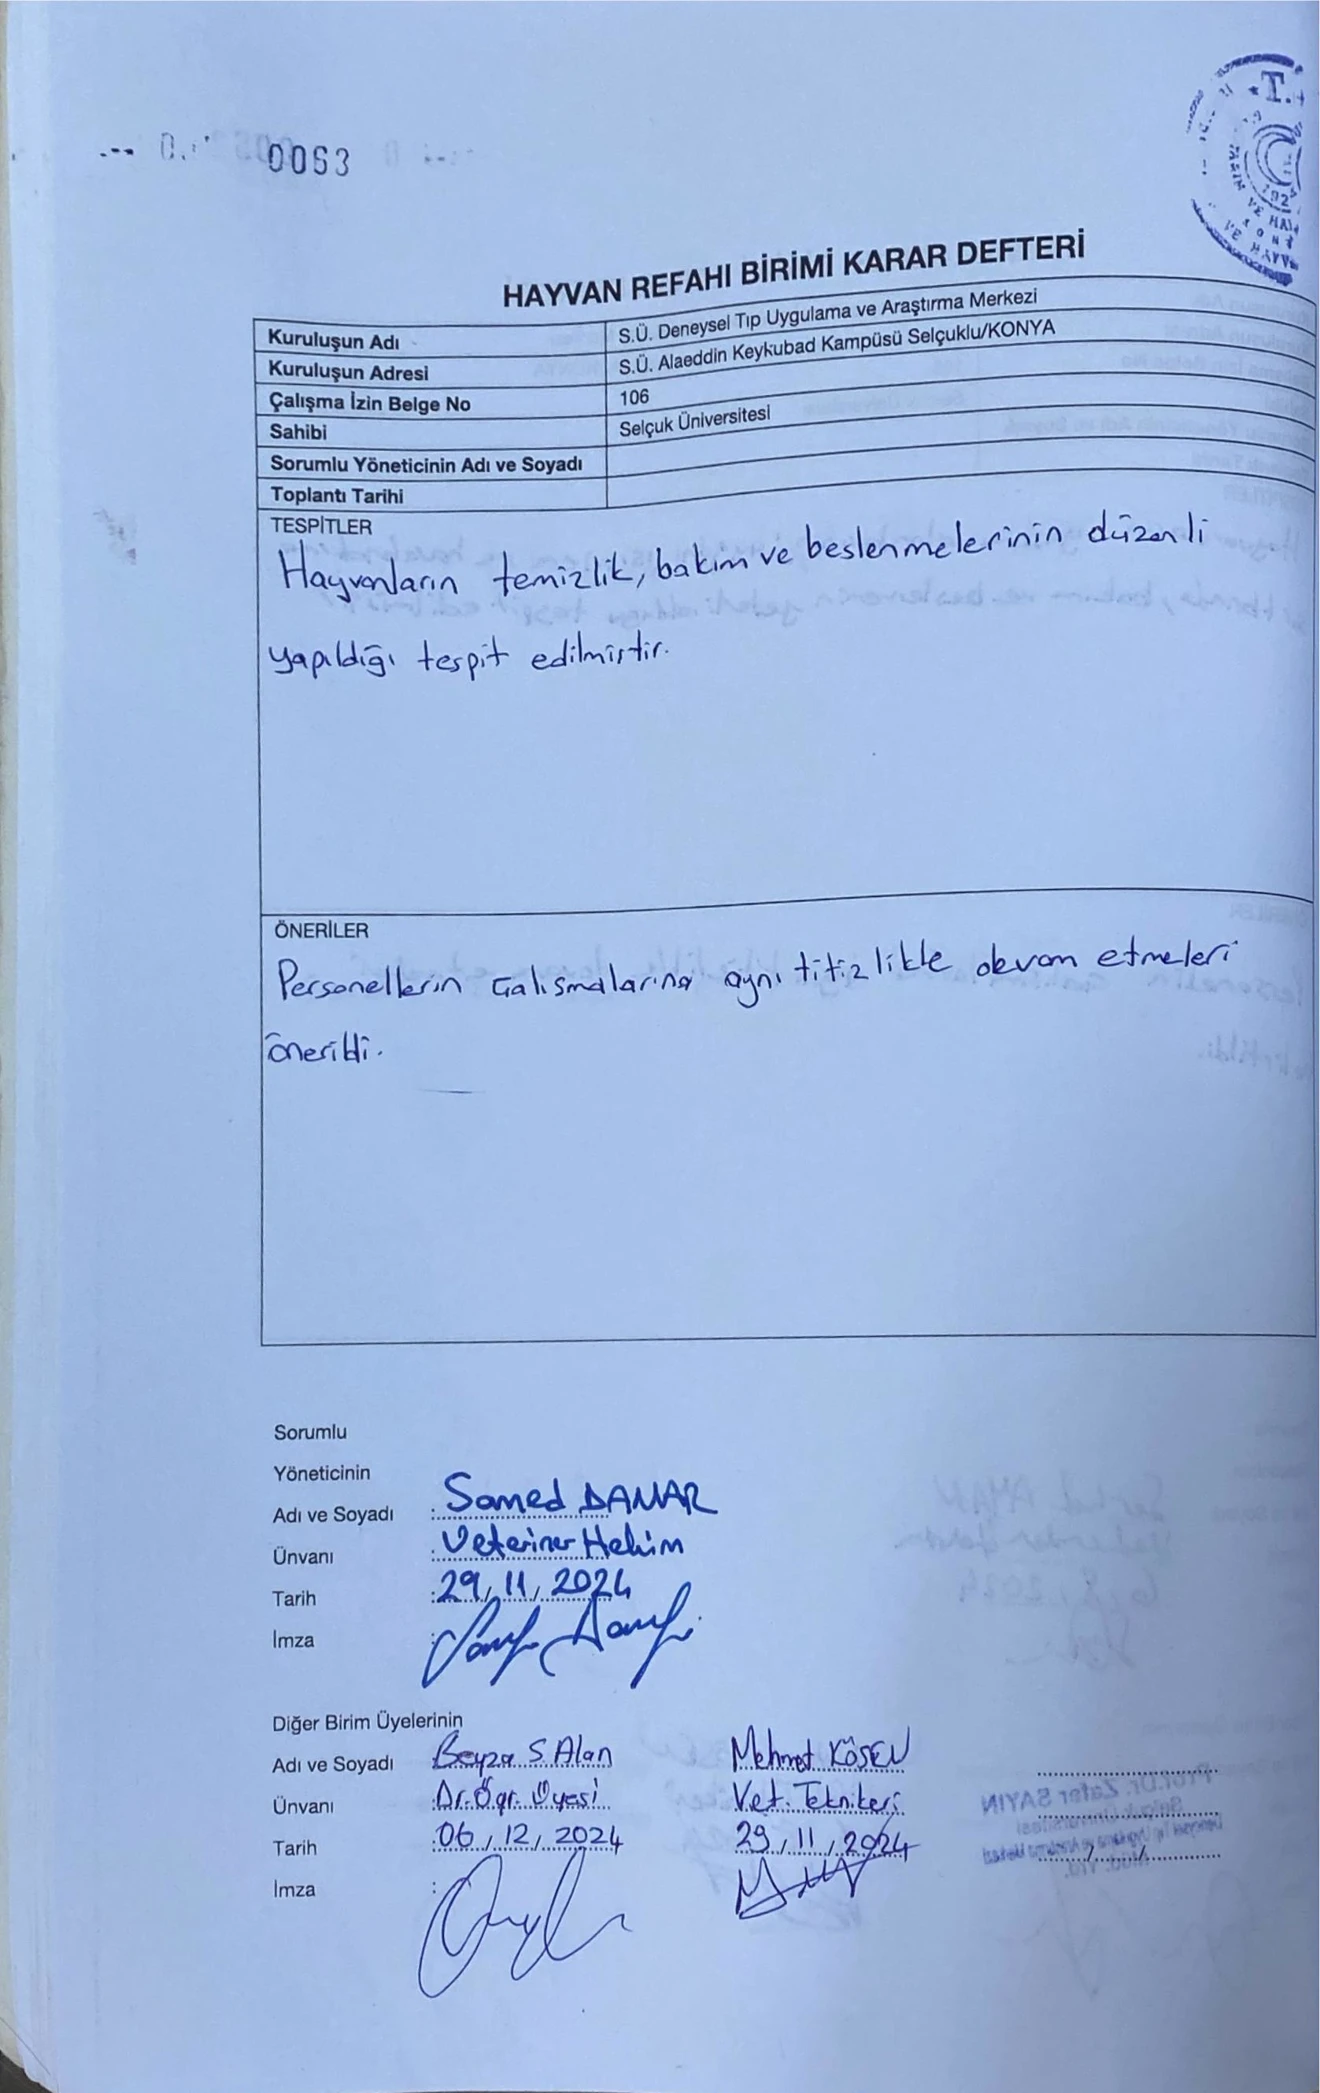 0053
HAYVAN REFAHI BİRİMİ KARAR DEFTERİ
Kuruluşun Adı S.Ü. Deneysel Tıp Uygulama ve Araştırma Merkezi
Kuruluşun Adresi S.Ü. Alaeddin Keykubad Kampüsü Selçuklu/KONYA
Çalışma İzin Belge No 106
Sahibi Selçuk Üniversitesi
Sorumlu Yöneticinin Adı ve Soyadı
Toplantı Tarihi
TESPİTLER
Hayvanların temizlik, bakım ve beslenmelerinin düzenli
yapıldığı tespit edilmiştir.
ÖNERİLER
Personellerin çalışmalarına aynı titizlikle devam etmeleri
önerildi.
Sorumlu
Yöneticinin
Adı ve Soyadı : Samed DAMAR
Ünvanı : Veteriner Hekim
Tarih : 29/11/2024
İmza :
Diğer Birim Üyelerinin
Adı ve Soyadı Beyza S. Alan Mehmet KÖSEN
Ünvanı : Dr. Öğr. Üyesi Vet. Teknikeri
Tarih : 06/12/2024 29/11/2024
İmza :